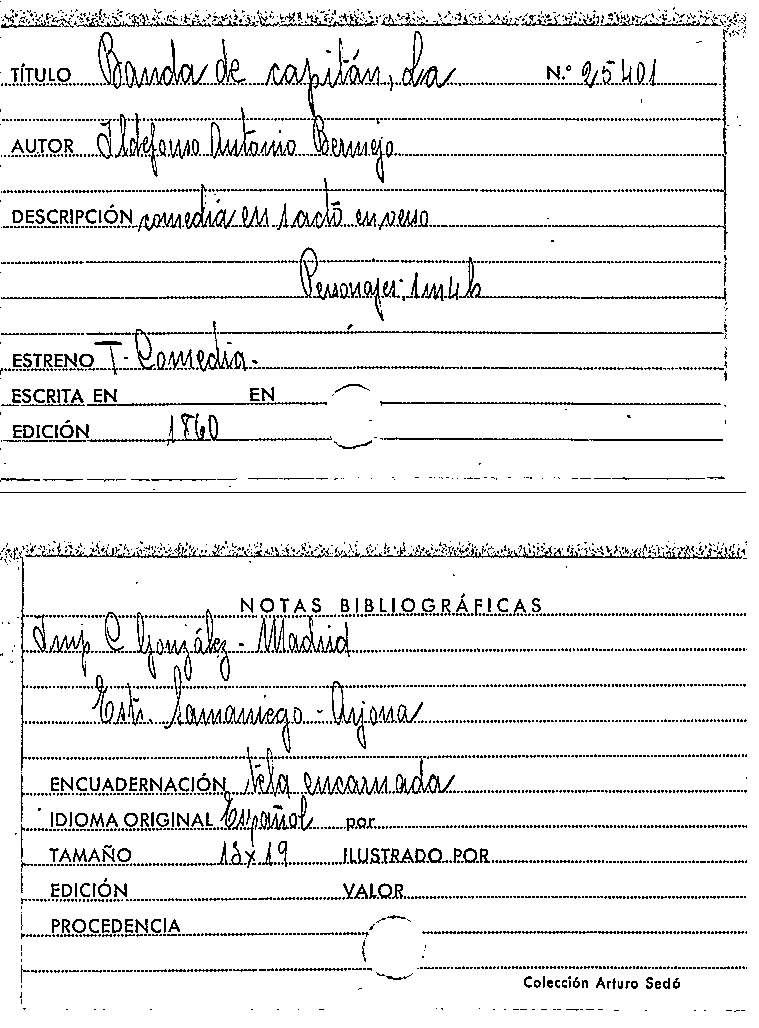 TÍTULO Banda de capitán, La N.º 25401
AUTOR Ildefonso Antonio Bermejo
DESCRIPCIÓN comedia en 1 acto en verso
Personajes: 1m 4h
ESTRENO T. Comedia.
ESCRITA EN EN
EDICIÓN 1860
NOTAS BIBLIOGRÁFICAS
Imp C González - Madrid
Estr. Samaniego - Arjona
ENCUADERNACIÓN tela encarnada
IDIOMA ORIGINAL Español por
TAMAÑO 13x19 ILUSTRADO POR
EDICIÓN VALOR
PROCEDENCIA
Colección Arturo Sedó